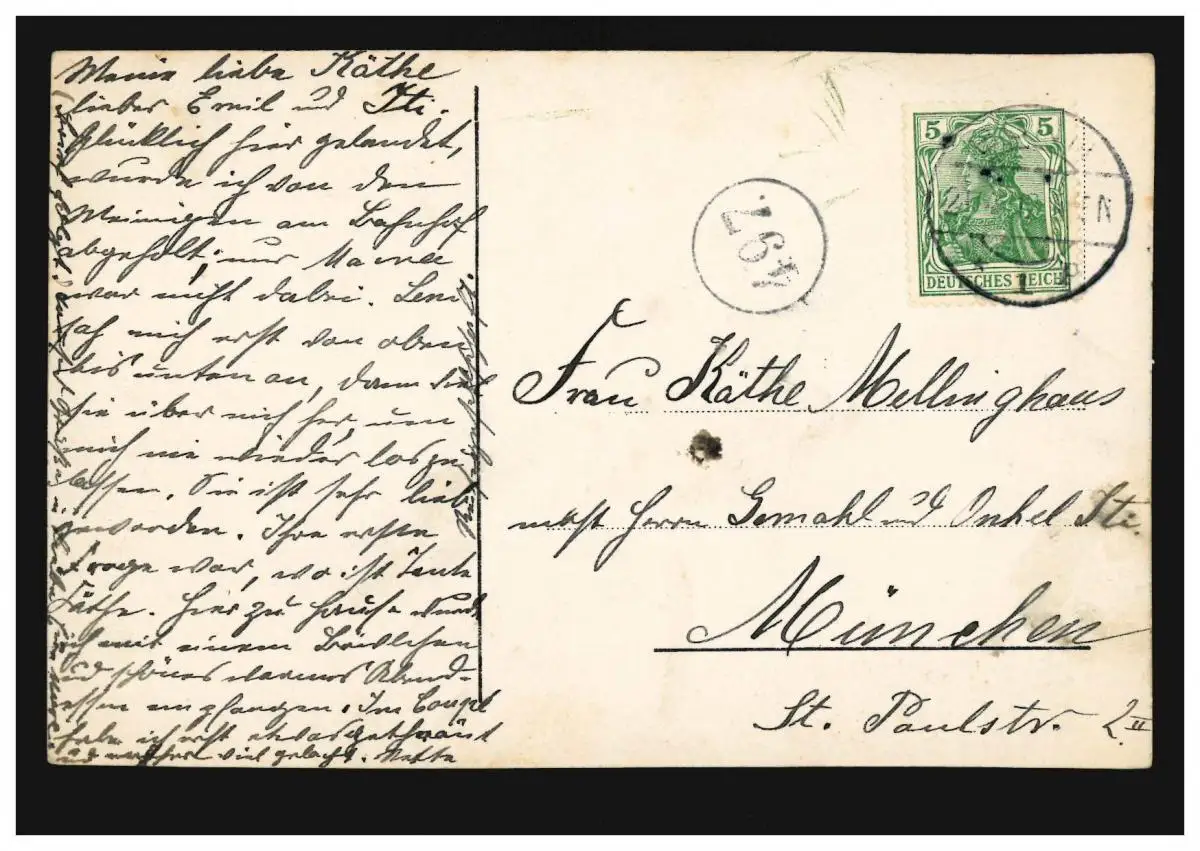 Meine liebe Käthe
lieber Emil und Iti.
Glücklich hier gelandet,
wurde ich von den
Meinigen am Bahnhof
abgeholt, nur Mama
war nicht dabei. Leni
sah mich erst von oben
bis unten an, dann fiel
sie über mich her, um
mich nie wieder loszu-
lassen. Sie ist sehr lieb
geworden. Ihre erste
Frage war, wo ist Tante
Käthe. Hier zu Hause wurde
ich mit einem
und schönes warmes Abend-
essen empfangen. Im Coupé
habe ich erst etwas geträumt
und nachher viel gelacht. Nette
5 5
DEUTSCHES REICH
497.
Frau Käthe Mellinghaus
nebst Herrn Gemahl und Onkel Iti.
München
St. Paulstr. 2 II